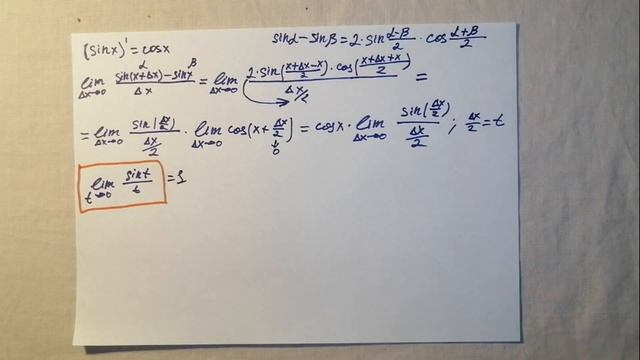 (sinx)' = cosx
sinα - sinβ = 2·sin (α-β)/2 · cos (α+β)/2
lim Δx→0 (sin(x+Δx) - sinx)/Δx = lim Δx→0 (2·sin((x+Δx-x)/2)·cos((x+Δx+x)/2))/(Δx/2) =
α β
= lim Δx→0 sin(Δx/2)/(Δx/2) · lim Δx→0 cos(x+Δx/2) = cosx · lim Δx→0 sin(Δx/2)/(Δx/2) ; Δx/2 = t
↓
0
lim t→0 sint/t = 1